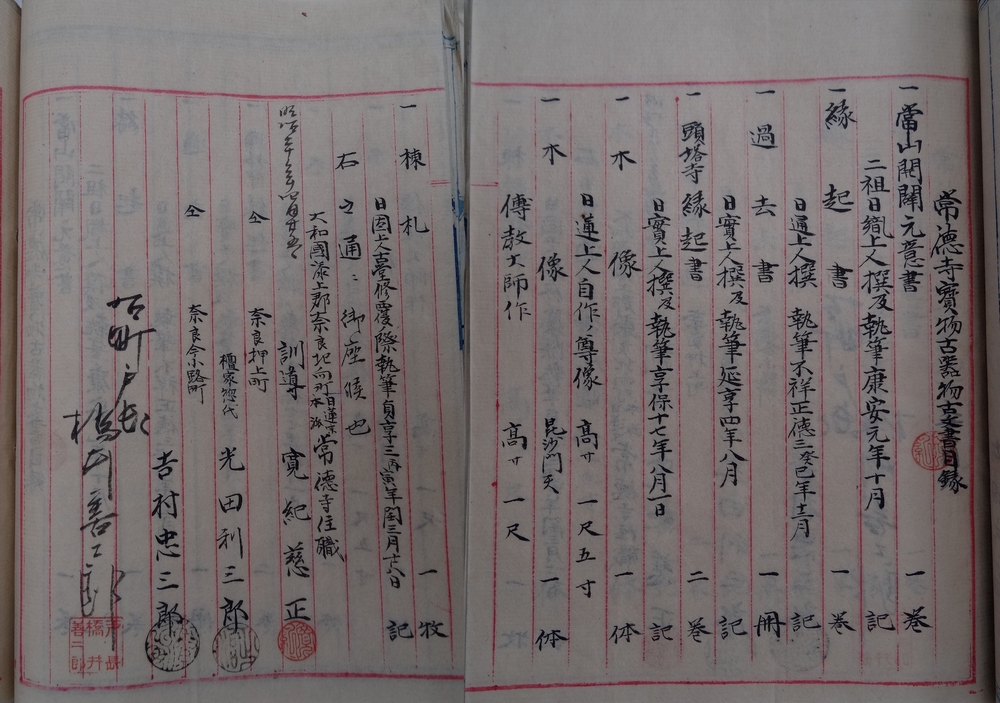 常德寺寳物古器物古文書目録
一當山開闢元意書 一巻
二祖日 上人撰及執筆康安元年十月 記
一縁起書 一巻
日通上人撰 執筆不祥正德三癸巳年十二月 記
一過去書 一冊
日實上人撰及執筆延享四年八月 記
一頭塔寺縁起書 二巻
日實上人撰及執筆享保十七年八月一日 記
一木像 一体
日蓮上人自作ノ尊像 高サ一尺五寸
一木像 毘沙門天 一体
傳教大師作 高サ一尺
一棟札 一牧
日因上人 修覆際執筆貞享三丙寅年閏三月十八日 記
右之通ニ御座候也
明治 年四月
大和國添上郡奈良北向町日蓮宗本派常德寺住職
訓導 寛紀慈正
仝 奈良押上町
檀家惣代 光田利三郎
仝 奈良今小路町
吉村忠三郎
右町戸長
橋井善二郎
戸長
橋井
善二郎